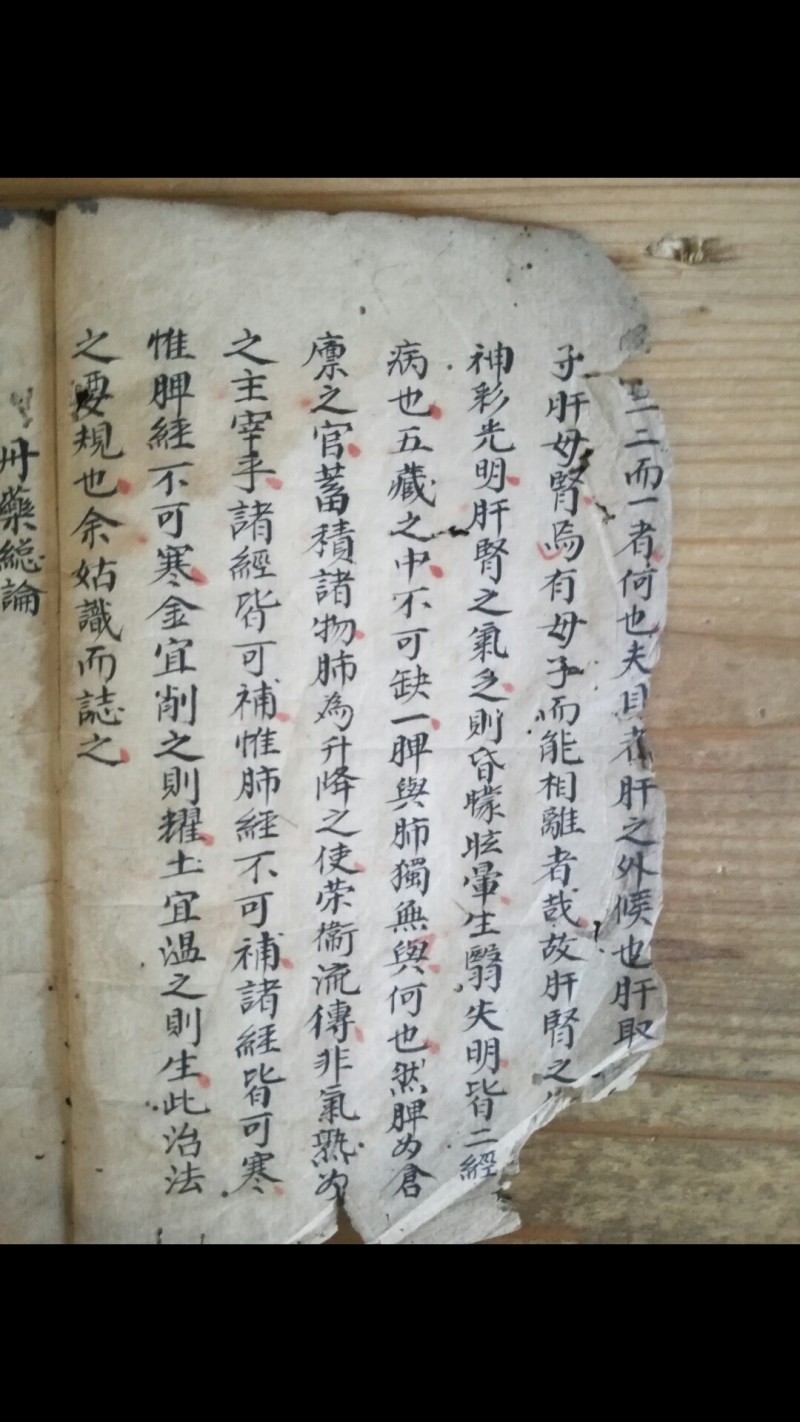 二而一者何也夫目者肝之外候也肝取
子肝母腎焉有母子而能相離者哉故肝腎之
神彩光明肝腎之氣乏則昏矇眩暈生翳失明皆二經
病也五藏之中不可缺一脾與肺獨無與何也然脾为倉
廪之官蓄積諸物肺為升降之使荣衞流傳非氣孰为
之主宰乎諸經皆可補惟肺經不可補諸經皆可寒
惟脾經不可寒金宜削之則耀土宜温之則生此治法
之要規也余姑識而誌之
丹藥総論